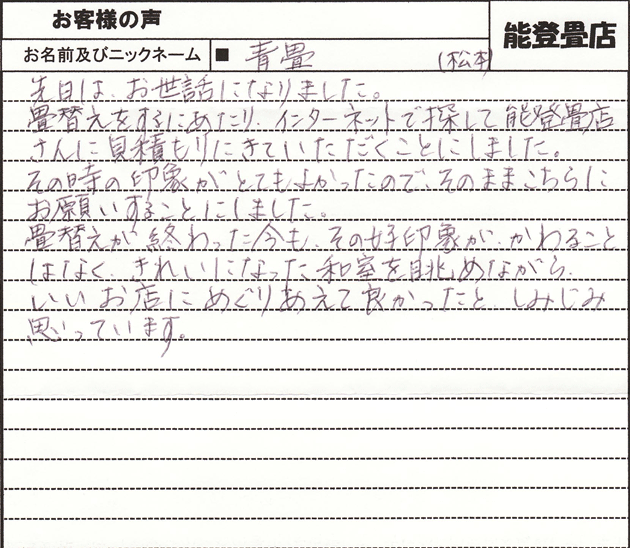 お客様の声
能登畳店
お名前及びニックネーム ■ 青畳 (松本)
先日は、お世話になりました。
畳替えをするにあたり、インターネットで探して能登畳店
さんに見積もりにきていただくことにしました。
その時の印象がとてもよかったので、そのままこちらに
お願いすることにしました。
畳替えが終わった今も、その好印象が、かわること
はなく、きれいになった和室を眺めながら、
いいお店にめぐりあえて良かったと、しみじみ
思っています。